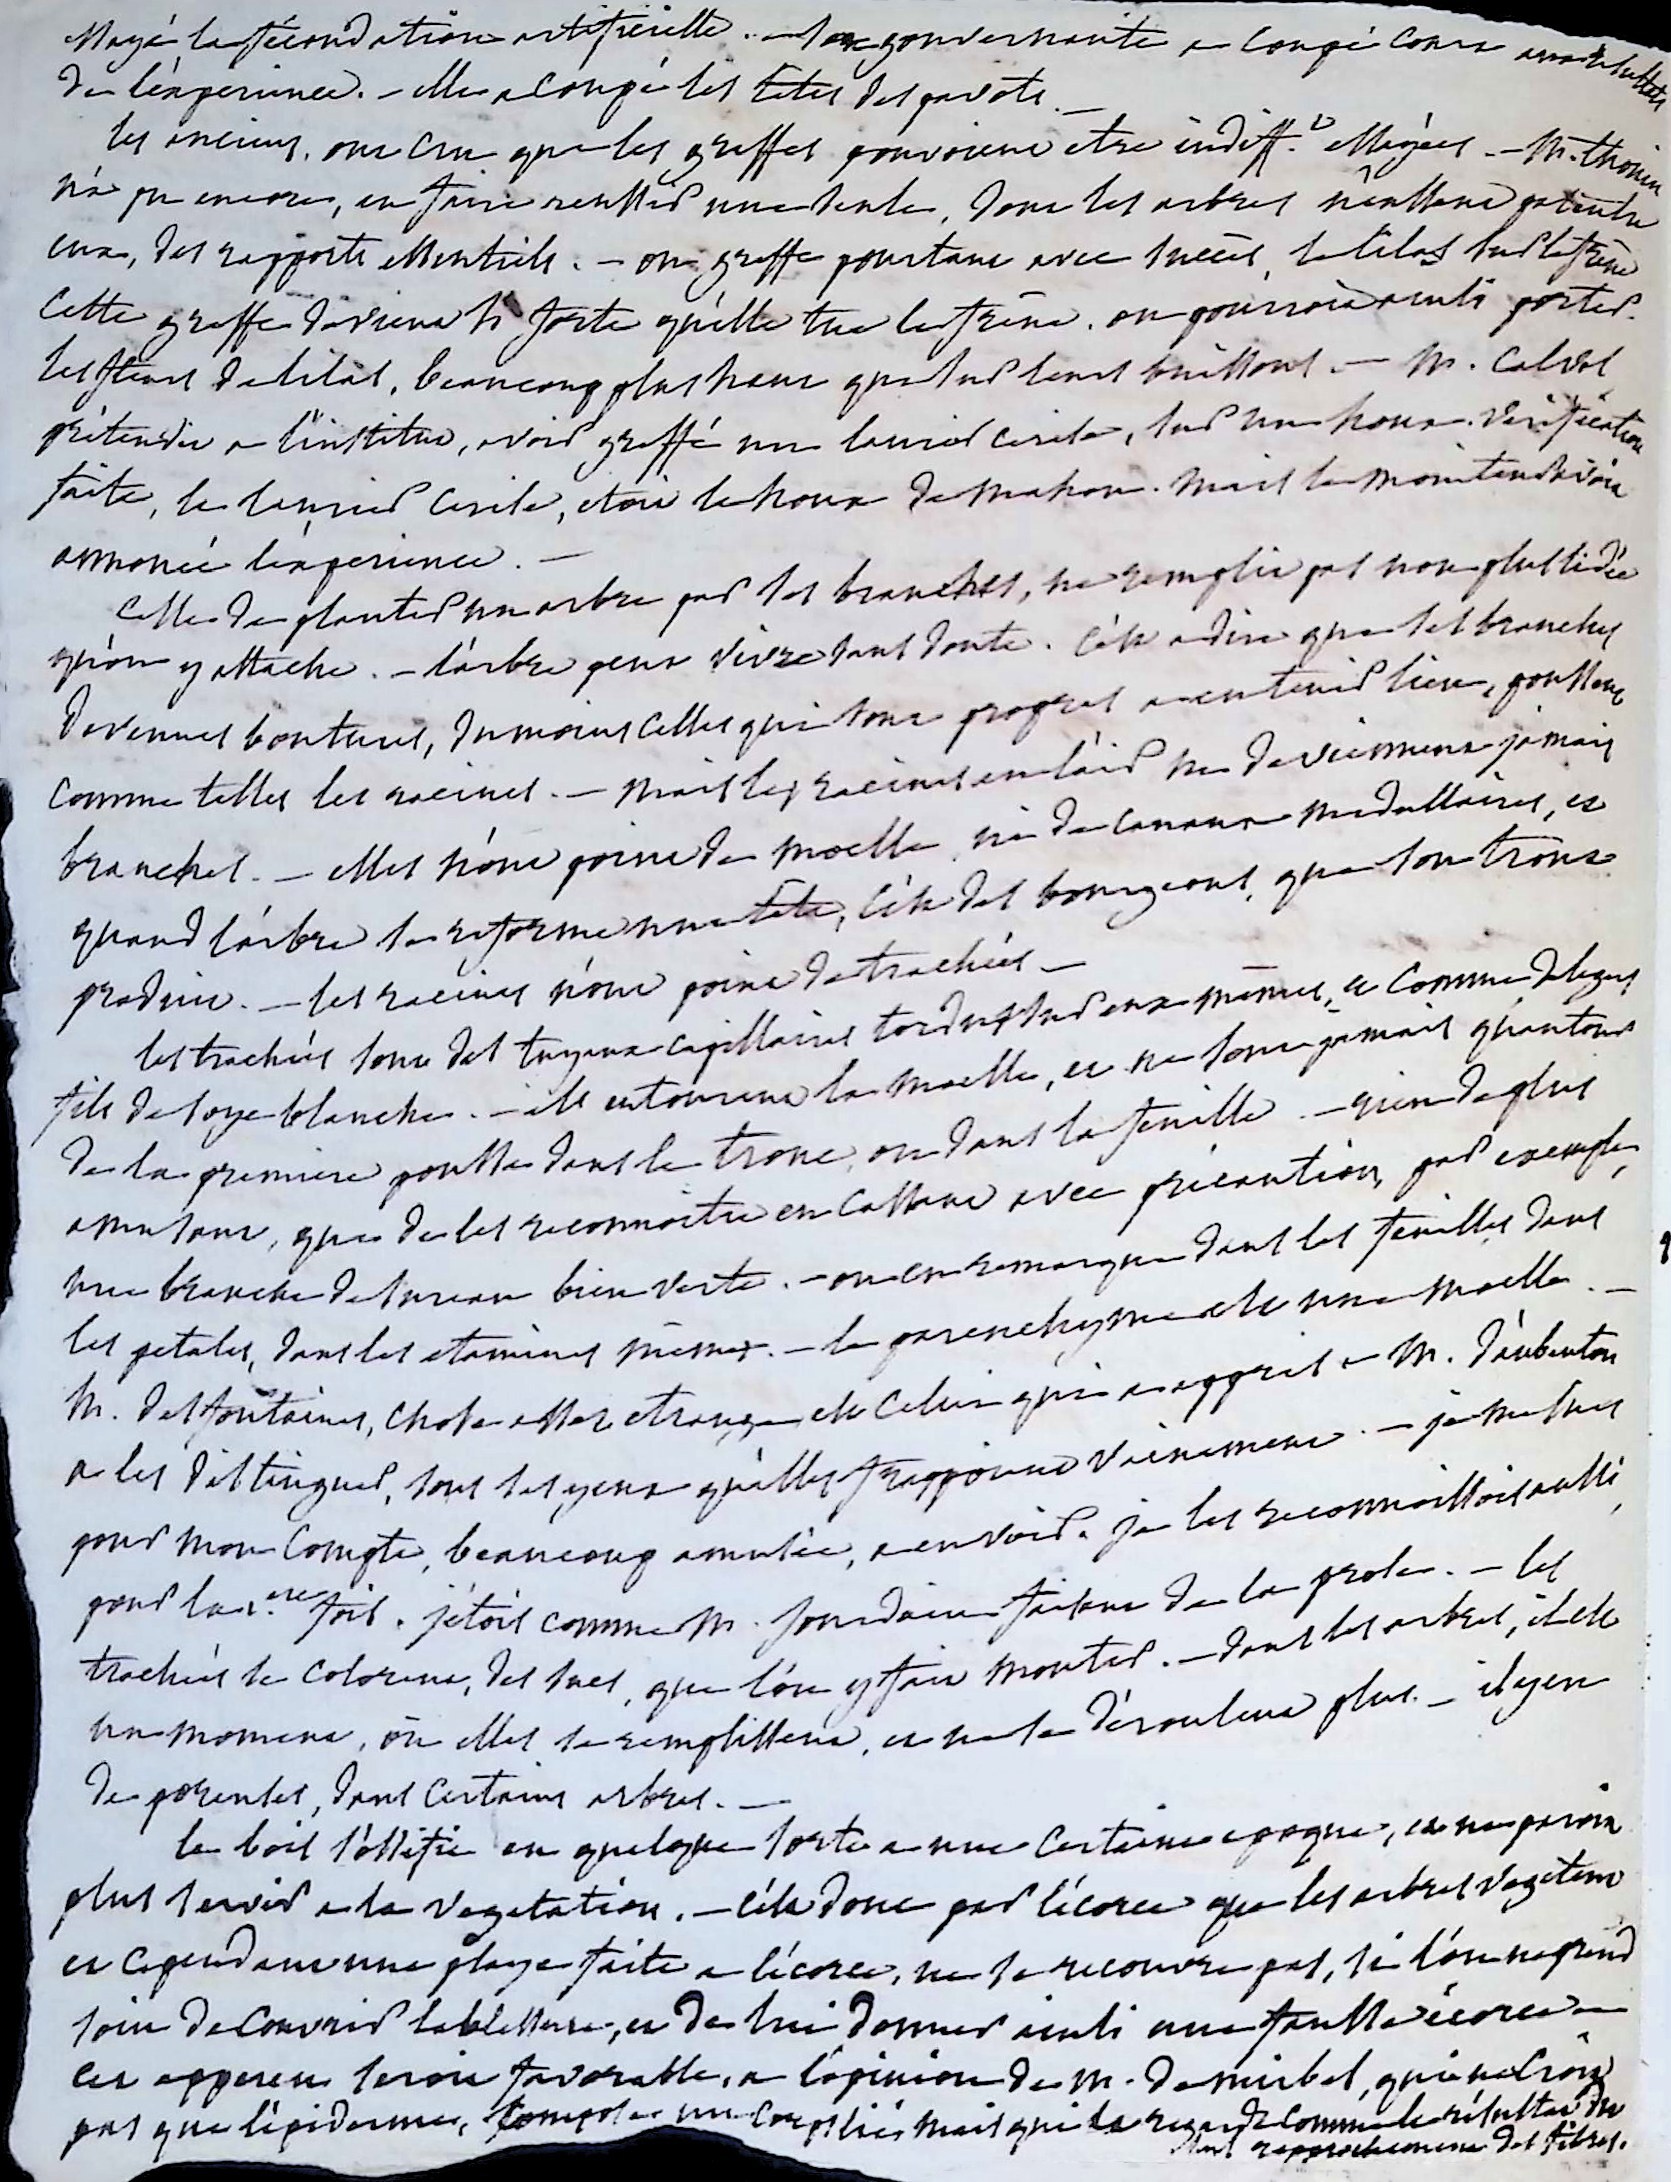 essayé la fécondation artificielle. – sa gouvernante a coupé cours aux resultats
de l'éxperience. – elle a coupé les têtes des pavots. –
les anciens, ont cru que les greffes pouvoient etre indiff.t essayées. – M. thouin
n'a pu encore, en faire reussir une seule, dont les arbres n'eussent pas entre
eux, des rapports essentiels. – on greffe pourtant avec succès, le lilas sur le frêne
cette greffe devient si forte qu'elle tue le frêne. on pourroit ainsi porter
les fleurs de lilas, beaucoup plus haut que sur leurs buissons. – M. Calvel
prétendit a l'institut, avoir greffé un laurier cerise, sur un houx. Vérification
faite, le laurier cerise, etoit le houx de mahon. mais le moniteur avoit
annoncé l'éxperience. –
Celle de planter un arbre par les branches, ne remplit pas non plus l'idée
qu'on y attache. – l'arbre peut vivre sans doute. c'est a dire que les branches
devenues boutures, du moins celles qui sont propres a en tenir lieu, poussent
comme telles les racines. – mais les racines en l'air ne deviennent jamais
branches. – elles n'ont point de moelle, ni de canaux medullaires, et
quand l'arbre se reforme une tête, c'est des bourgeons, que son tronc
produit. – les racines n'ont point de trachées –
les trachées sont des tuyaux capillaires tordus sur eux mêmes, et comme de legers
fils de soye blanche. – ils entourent la moelle, et ne sont jamais qu'autour
de la premiere pousse dans le tronc, ou dans la feuille. – rien de plus
amusant, que de les reconnoitre en cassant avec précaution, par exemple,
une branche de sureau bien verte. – on en remarque dans les feuilles dans
les petales, dans les etamines mêmes. – le parenchyme est une moelle. –
M. desfontaines, chose assez etrange est celui qui a appris a M. d'aubenton
a les distinguer, sous ses yeux qu'elles frappoient vainement. – je me suis
pour mon compte, beaucoup amusée, a en voir. je les reconnoissois aussi,
pour la 1.ere fois. j'étois comme M. jourdain faisant de la prose. – les
trachées se colorent, des sucs, que l'on y fait monter. – dans les arbres, il est
un moment, où elles se remplissent, et ne se déroulent plus. – il y en
de poreuses, dans certains arbres. –
le bois s'ossifie en quelque sorte a une certaine epoque, et ne paroit
plus servir a la vegetation. – c'est donc par l'écorce que les arbres vegetent
et cependant une playe faite a l'écorce, ne se recouvre pas, si l'on ne prend
soin de couvrir la blessure, et de lui donner ainsi une fausse écorce –
cet apperçu seroit favorable, a l'opinion de M. de mirbel, qui ne croit
pas que l'épiderme, compose un corps lié, mais qui la regarde comme le résultat du
seul rapprochement des fibres.